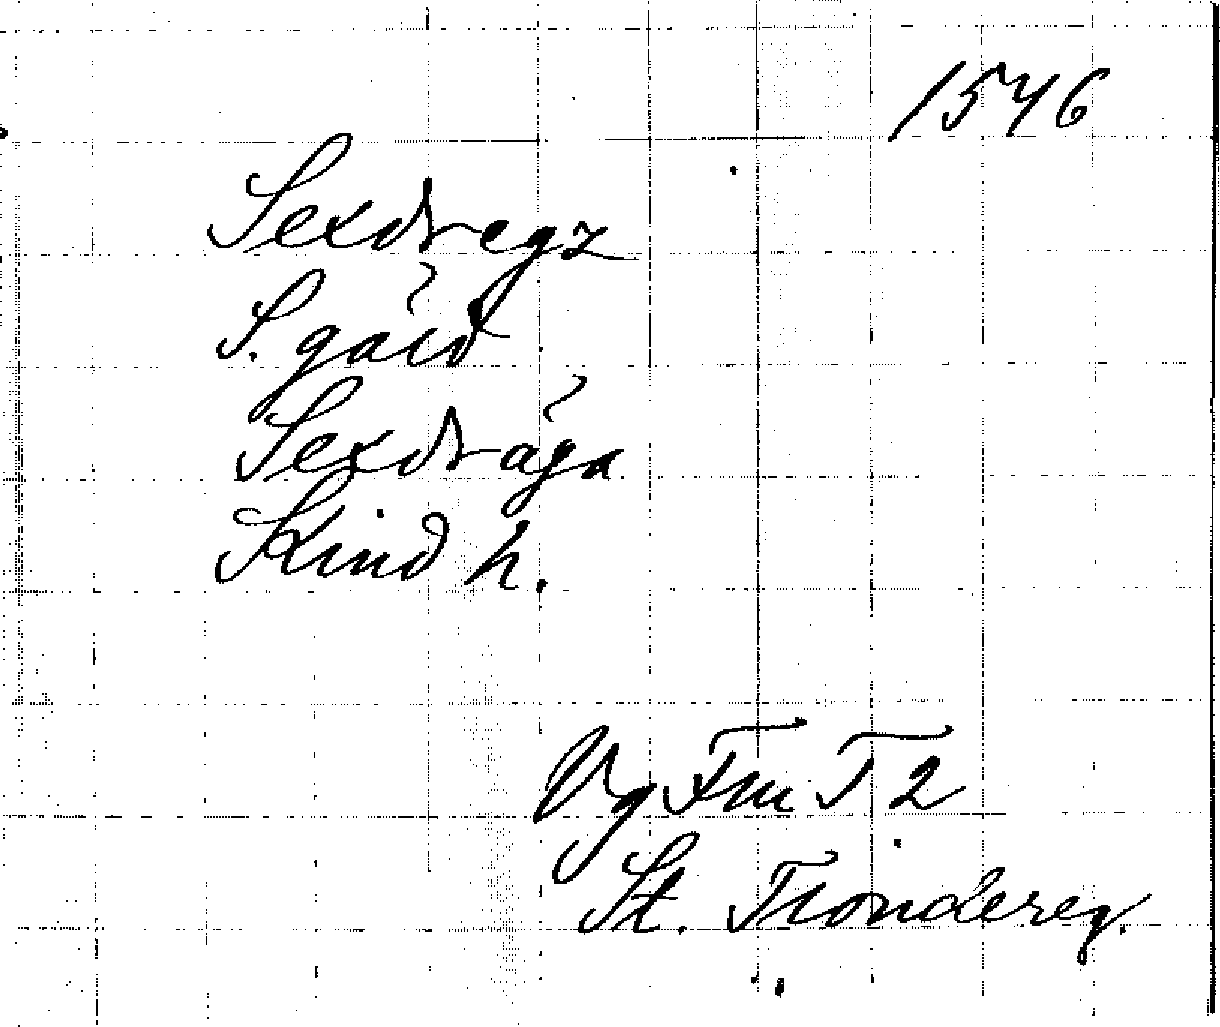 1546
Sexdregz
S. gård
Sexdråga
Kind h.
Vg Fm T 2
St. Tiondereg.